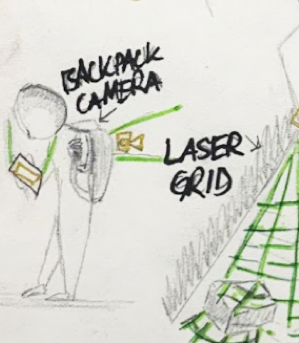 BACKPACK
CAMERA
LASER
GRID